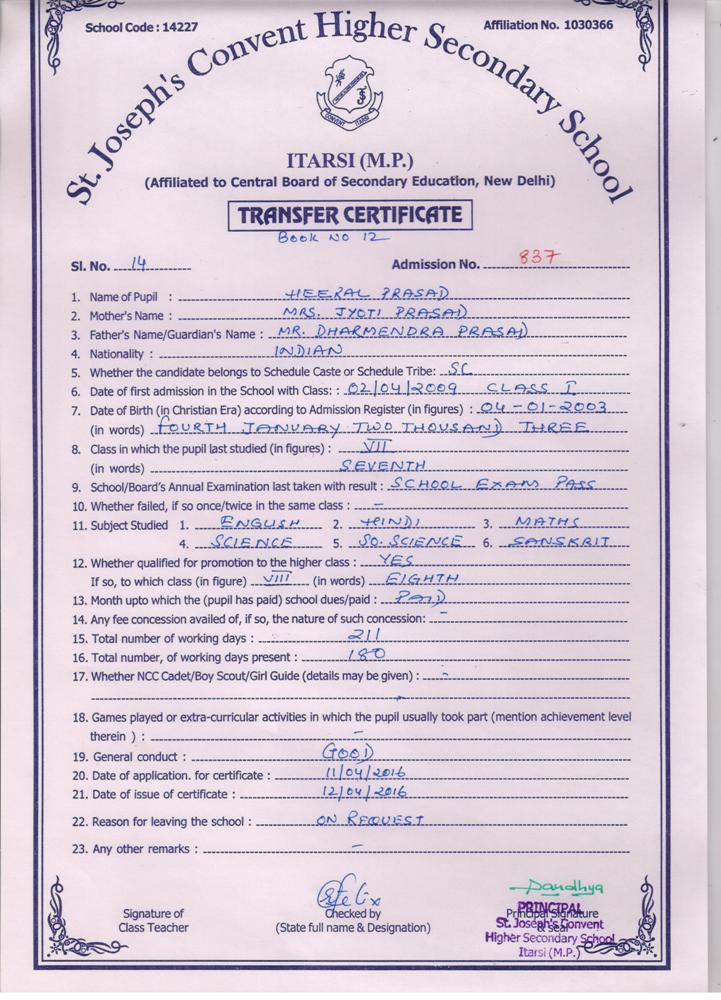 School Code : 14227
Affiliation No. 1030366
St. Joseph's Convent Higher Secondary School
CONVENT ITARSI
ITARSI (M.P.)
(Affiliated to Central Board of Secondary Education, New Delhi)
TRANSFER CERTIFICATE
BOOK NO 12
Sl. No. 14 Admission No. 837
1. Name of Pupil : HEERAL PRASAD
2. Mother's Name : MRS. JYOTI PRASAD
3. Father's Name/Guardian's Name : MR. DHARMENDRA PRASAD
4. Nationality : INDIAN
5. Whether the candidate belongs to Schedule Caste or Schedule Tribe: SC
6. Date of first admission in the School with Class: : 02/04/2009 CLASS I
7. Date of Birth (in Christian Era) according to Admission Register (in figures) : 04-01-2003
(in words) FOURTH JANUARY TWO THOUSAND THREE
8. Class in which the pupil last studied (in figures) : VII
(in words) SEVENTH
9. School/Board's Annual Examination last taken with result : SCHOOL EXAM PASS
10. Whether failed, if so once/twice in the same class : –
11. Subject Studied 1. ENGLISH 2. HINDI 3. MATHS
4. SCIENCE 5. SO. SCIENCE 6. SANSKRIT
12. Whether qualified for promotion to the higher class : YES
If so, to which class (in figure) VIII (in words) EIGHTH
13. Month upto which the (pupil has paid) school dues/paid : PAID
14. Any fee concession availed of, if so, the nature of such concession: –
15. Total number of working days : 211
16. Total number, of working days present : 180
17. Whether NCC Cadet/Boy Scout/Girl Guide (details may be given) : –
18. Games played or extra-curricular activities in which the pupil usually took part (mention achievement level
therein ) : –
19. General conduct : GOOD
20. Date of application. for certificate : 11/04/2016
21. Date of issue of certificate : 12/04/2016
22. Reason for leaving the school : ON REQUEST
23. Any other remarks : –
Signature of
Class Teacher
Checked by
(State full name & Designation)
Principal Signature
& seal
PRINCIPAL
St. Joseph's Convent
Higher Secondary School
Itarsi (M.P.)